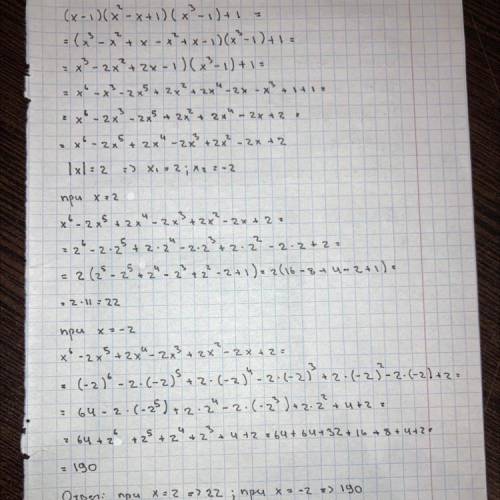 (x-1)(x²-x+1)(x³-1)+1 =
= (x³-x²+x-x²+x-1)(x³-1)+1=
= x³-2x²+2x-1)(x³-1)+1=
= x⁶-x³-2x⁵+2x²+2x⁴-2x-x³+1+1=
= x⁶-2x³-2x⁵+2x²+2x⁴-2x+2 =
= x⁶-2x⁵+2x⁴-2x³+2x²-2x+2
|x|=2 => x₁=2; x₂=-2
при x=2
x⁶-2x⁵+2x⁴-2x³+2x²-2x+2=
= 2⁶-2·2⁵+2·2⁴-2·2³+2·2²-2·2+2=
= 2(2⁵-2⁵+2⁴-2³+2²-2+1)=2(16-8+4-2+1)=
=2·11=22
при x=-2
x⁶-2x⁵+2x⁴-2x³+2x²-2x+2=
= (-2)⁶-2·(-2)⁵+2·(-2)⁴-2·(-2)³+2·(-2)²-2·(-2)+2=
= 64-2·(-2⁵)+2·2⁴-2·(-2³)+2·2²+4+2=
= 64+2⁶+2⁵+2⁴+2³+4+2=64+64+32+16+8+4+2=
= 190
Ответ: при x=2 => 22; при x=-2 => 190